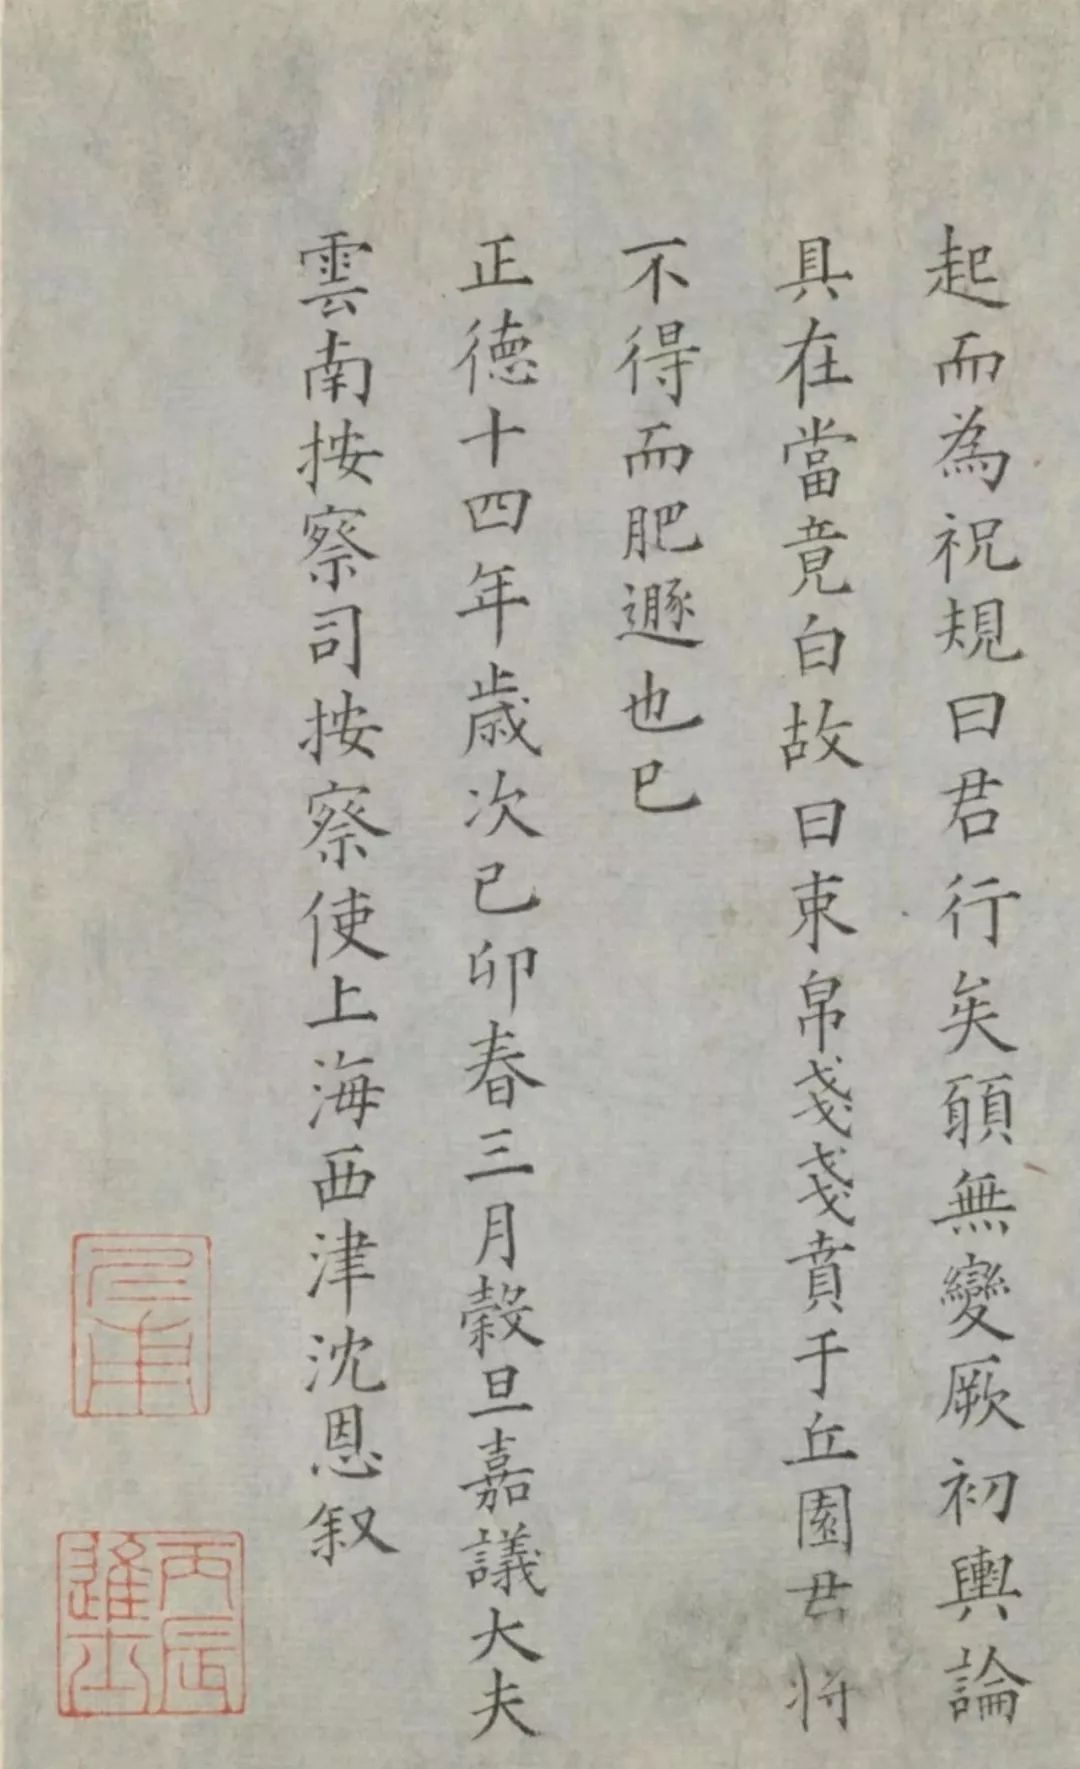 起而為祝規曰君行矣願無變厥初輿論
具在當竟白故曰束帛戔戔賁于丘園君将
不得而肥遯也已
正德十四年歳次己卯春三月穀旦嘉議大夫
雲南按察司按察使上海西津沈恩叙
仁甫
丙辰進士